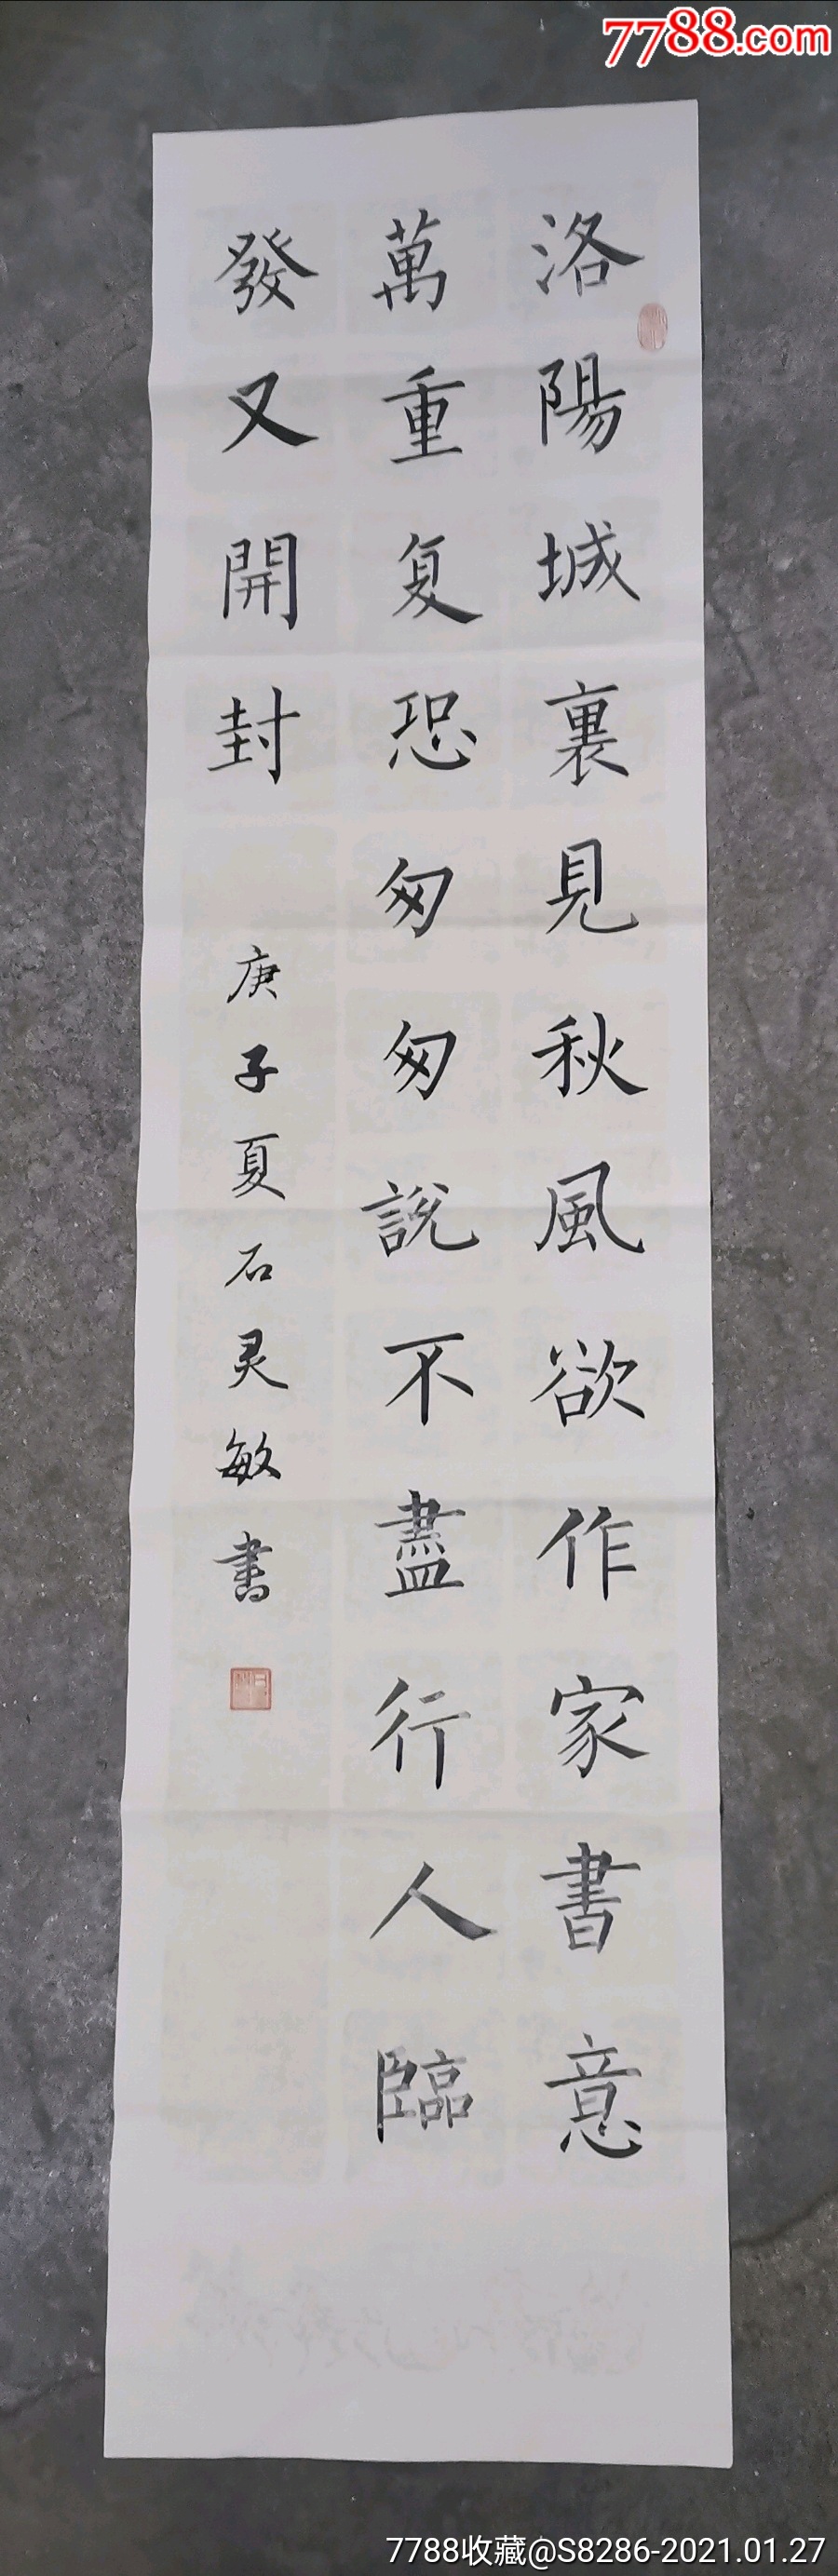 7788.com
洛陽城裏見秋風欲作家書意
萬重复恐匆匆說不盡行人臨
發又開封
庚子夏石灵敏書
7788收藏@S8286-2021.01.27